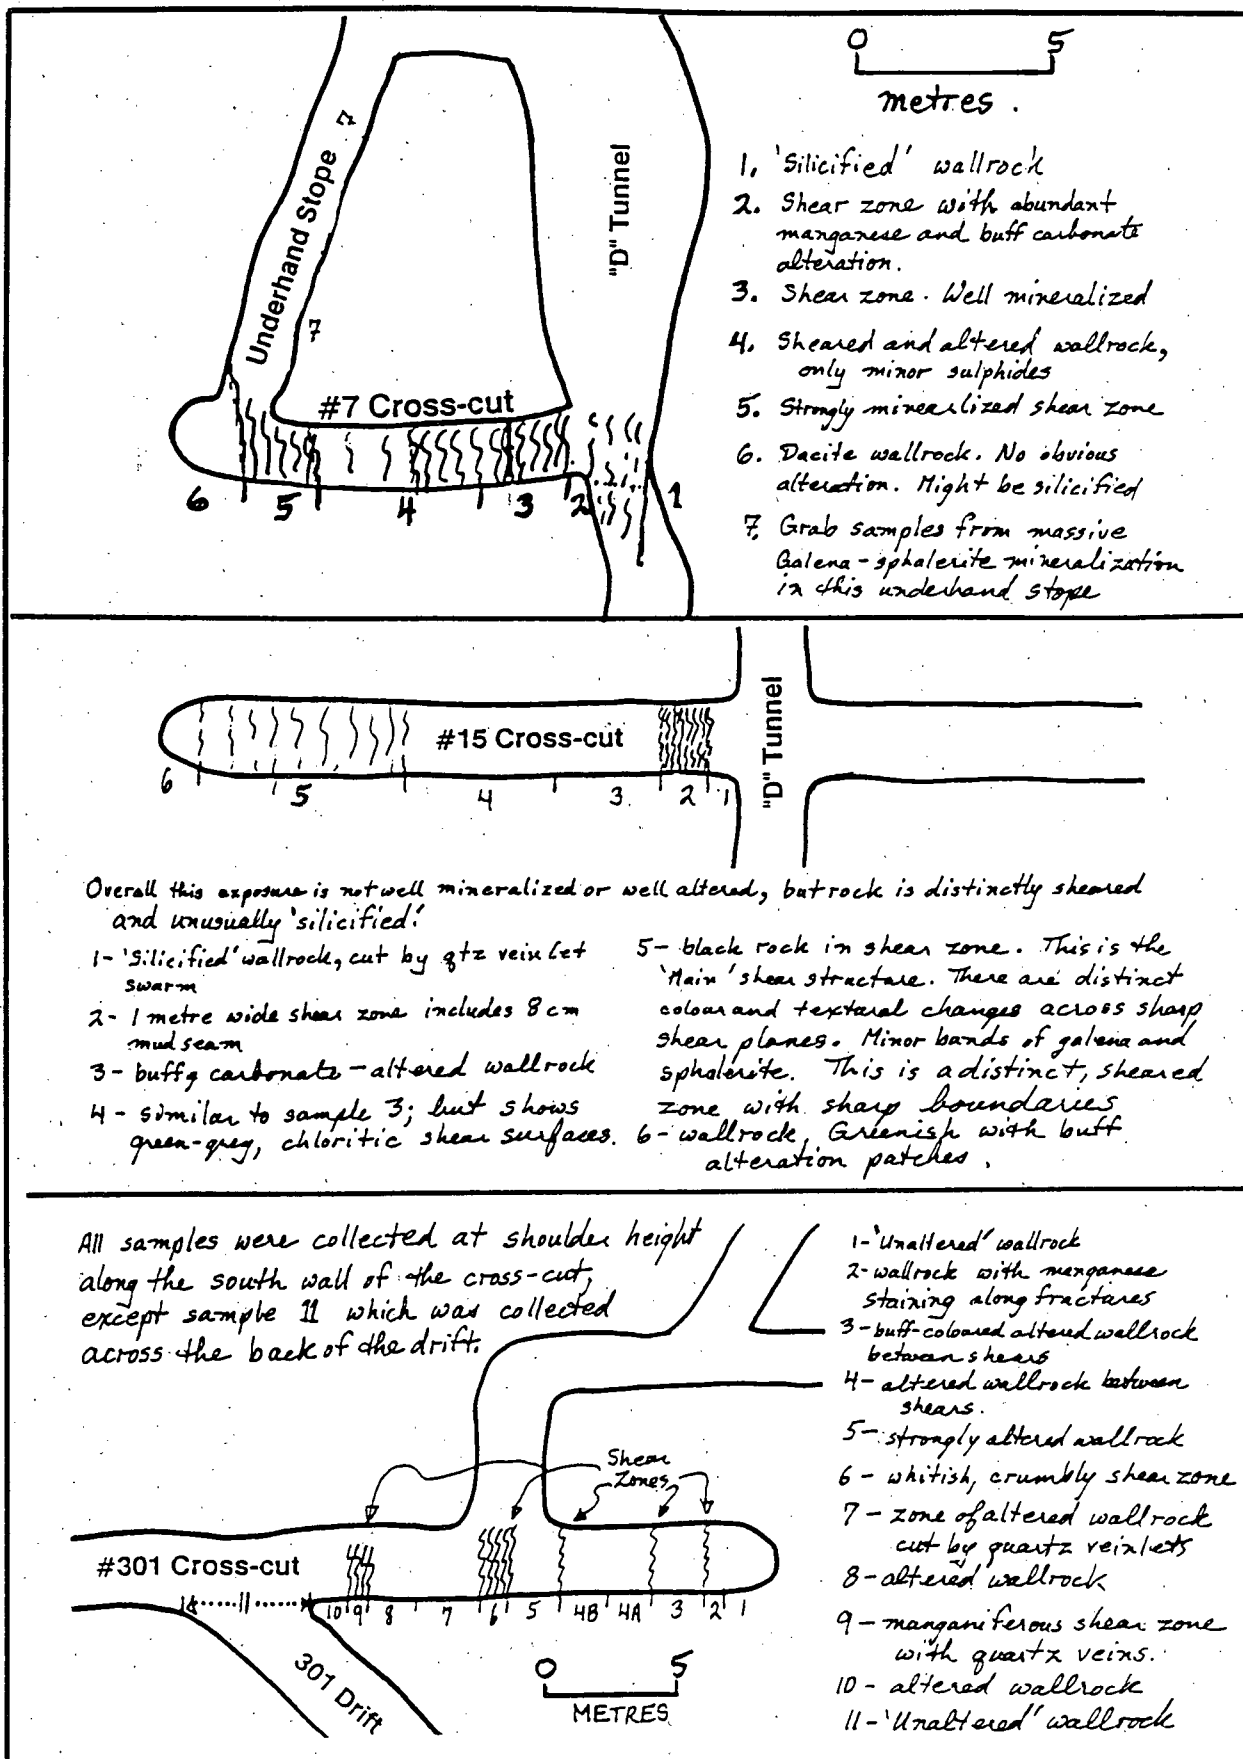 0 5
metres.
Underhand Stope
7
7
"D" Tunnel
#7 Cross-cut
6 5 4 3 2 1
1. 'Silicified' wallrock
2. Shear zone with abundant
manganese and buff carbonate
alteration.
3. Shear zone. Well mineralized
4. Sheared and altered wallrock,
only minor sulphides
5. Strongly minearlized shear zone
6. Dacite wallrock. No obvious
alteration. Might be silicified
7. Grab samples from massive
Galena-sphalerite mineralization
in this underhand stope
#15 Cross-cut
"D" Tunnel
6 5 4 3. 2 1
Overall this exposure is not well mineralized or well altered, but rock is distinctly sheared
and unusually 'silicified'.
1- 'Silicified' wallrock, cut by qtz veinlet
swarm
2- 1 metre wide shear zone includes 8 cm
mud seam
3- buffy carbonate-altered wallrock
4- similar to sample 3; but shows
green-grey, chloritic shear surfaces.
5- black rock in shear zone. This is the
'Main' shear structure. There are distinct
colour and textural changes across sharp
shear planes. Minor bands of galena and
sphalerite. This is a distinct, sheared
zone with sharp boundaries
6- wallrock, Greenish with buff
alteration patches.
All samples were collected at shoulder height
along the south wall of the cross-cut,
except sample 11 which was collected
across the back of the drift.
Shear
Zones
#301 Cross-cut
11 10 9 8 7 6 5 4B 4A 3 2 1
301 Drift
0 5
METRES
1- 'Unaltered' wallrock
2- wallrock with manganese
staining along fractures
3- buff-coloured altered wallrock
between shears
4- altered wallrock between
shears.
5- strongly altered wallrock
6- whitish, crumbly shear zone
7- zone of altered wallrock
cut by quartz veinlets
8- altered wallrock
9- manganiferous shear zone
with quartz veins.
10- altered wallrock
11- 'Unaltered' wallrock